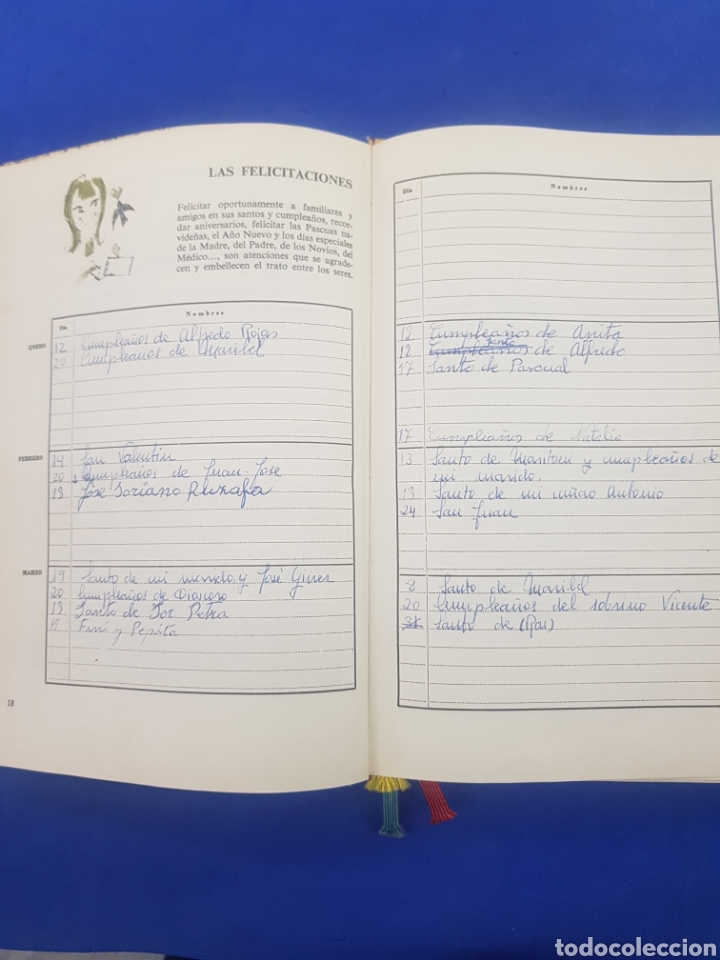 LAS FELICITACIONES
Felicitar oportunamente a familiares y
amigos en sus santos y cumpleaños, recor-
dar aniversarios, felicitar las Pascuas na-
videñas, el Año Nuevo y los días especiales
de la Madre, del Padre, de los Novios, del
Médico..., son atenciones que se agrade-
cen y embellecen el trato entre los seres.
Día Nombres
ENERO 12 Cumpleaños de Alfredo Rojas
20 Cumpleaños de Maribel
FEBRERO 14 San Valentin
20 Cumpleaños de Juan-Jose
19 Jose Soriano Ruzafa
MARZO 19 Santo de mi marido y José Giner
20 Cumpleaños de
13 Santo de Sor Petra
Fini y Pepita
18
Día Nombres
12 Cumpleaños de Anita
12 Cumpleaños Santo de Alfredo
17 Santo de Pascual
17 Cumpleaños de Natalia
13 Santo de y cumpleaños de
mi marido.
13 Santo de mi Antonio
24 San Juan
8 Santo de Maribel
20 Cumpleaños del sobrino Vicente
Santo de
todocoleccion